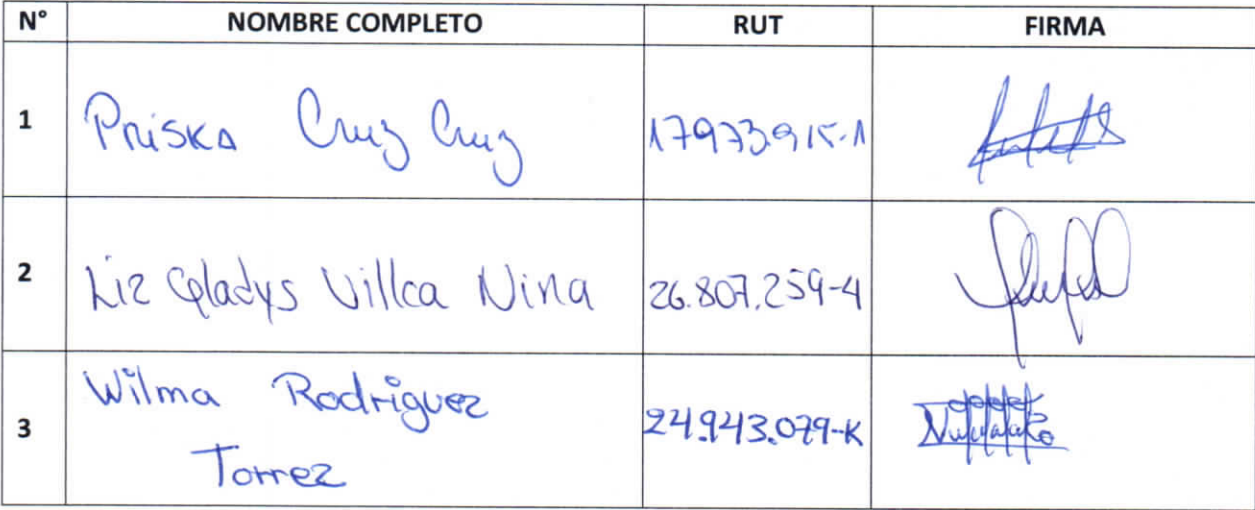 N° NOMBRE COMPLETO RUT FIRMA
1 Priska Cruz Cruz 17973.915-1
2 Liz Gladys Villca Nina 26.807.259-4
3 Wilma Rodriguez
Torrez 24.943.079-K